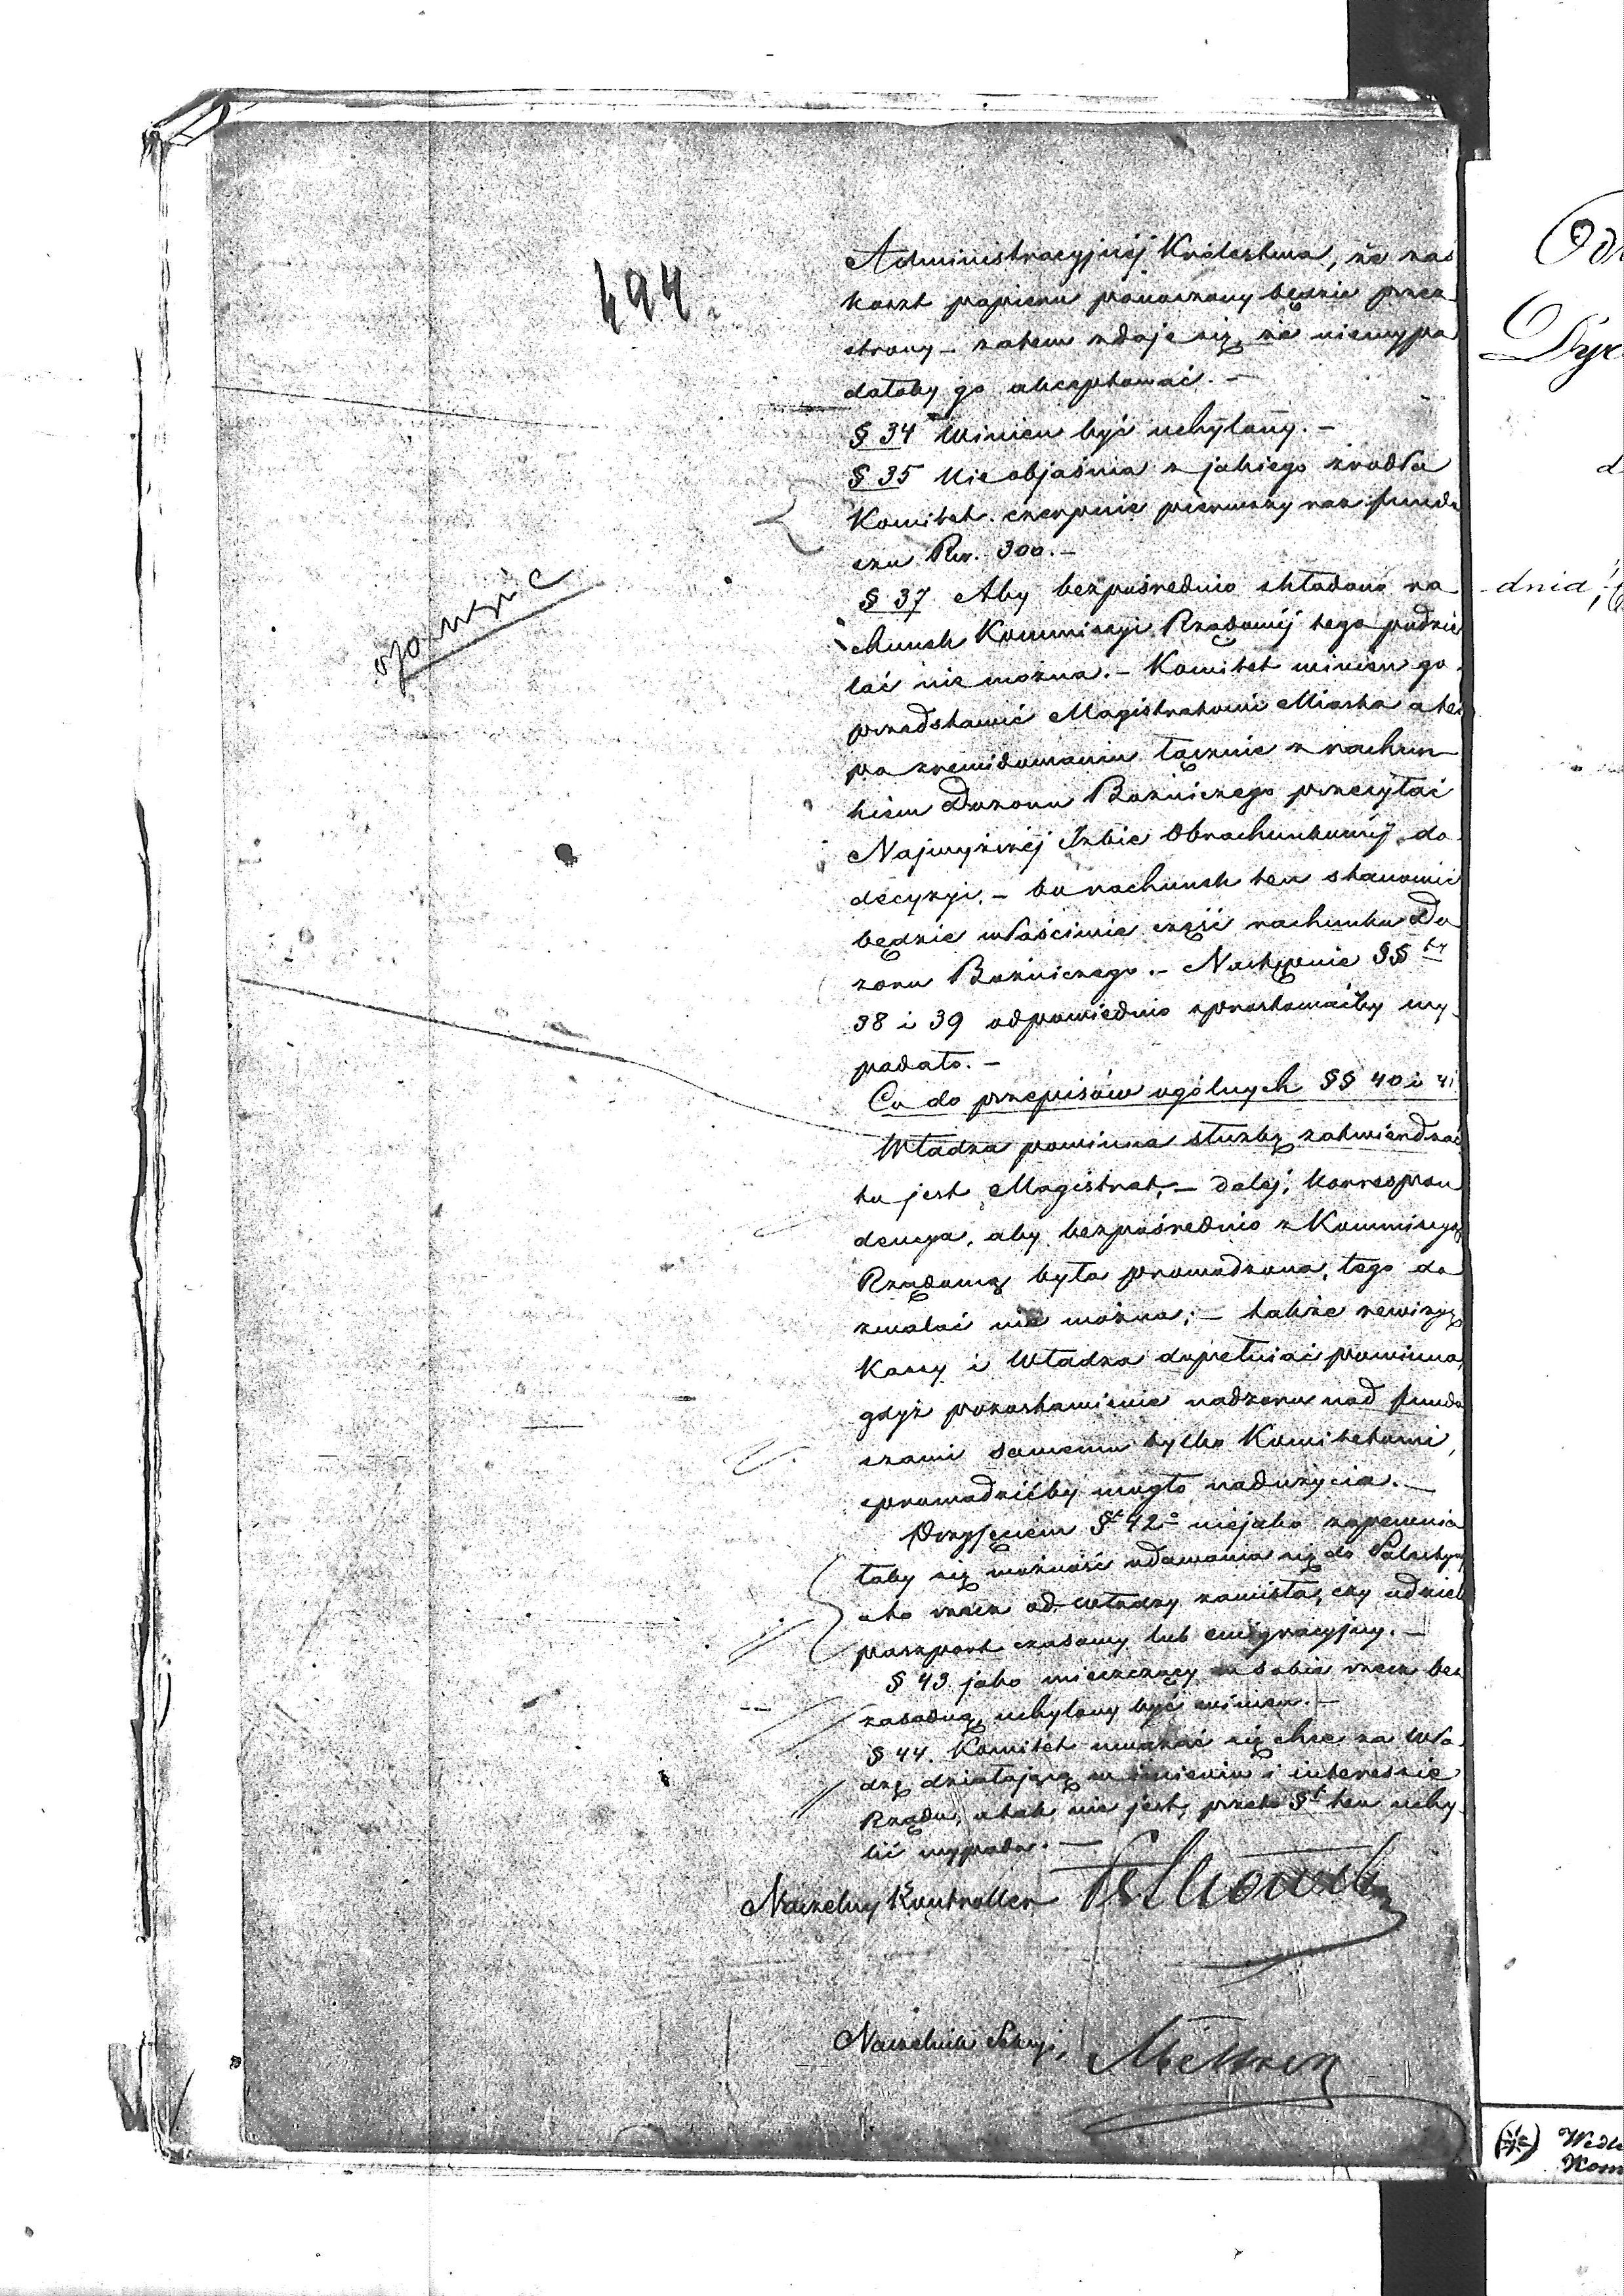 494.
Administracyjnéj Królestwa, że zaś
koszt papieru ponoszony będzie przez
strony – zatem zdaje się, że niewypa
dałoby go akceptować. –
§ 34 Winien być uchylony. –
§ 35 Nie objaśnia z jakiego źródła
Komitet czerpnie pierwszy raz fundu
szu Rsr. 300. –
§ 37 Aby bezpośrednio składano ra
chunek Kommissyi Rządowéj tego podzie
lać nie można. – Komitet winien go
przedstawić Magistratowi Miasta a ten
po zrewidowaniu łącznie z rachun
kiem Dozoru Bożniczego przesyłać
Najwyższéj Izbie Obrachunkowéj do
decyzyi, – bo rachunek ten stanowić
będzie właściwie część rachunku Do
zoru Bożniczego. – Następnie §§ty
38 i 39 odpowiednio sprostowaćby wy
padało. –
Co do przepisów ogólnych §§ 40 i 41
Władza powinna służbę zatwierdzać
tu jest Magistrat, – daléj, korrespon
dencya, aby bezpośrednio z Kommissyą
Rządową była prowadzona, tego do
zwalać nie można; – także rewizyę
Kassy i Władza dopełniać powinna,
gdyż pozostawienie nadzoru nad fundu
szami samemu tylko Komitetowi,
sprowadzićby mogło nadużycia. –
Przyjęciem §u 42o niejako zapewnia
łaby się możność udawania się do Palestyny
ako rzecz od władzy zawisła, czy udzieli
paszport czasowy lub emigracyjny. –
§ 43 jako mieszczący w sobie rzecz bez
zasadną, uchylony być winien. –
§ 44. Komitet uważać się chce za Wła
dzę działającą w imieniu i interessie
Rządu, a tak nie jest, przeto §f ten uchy
lić wypada. –
Naczelny Kontroller
Naczelnik Sekcyi,
Odr
Dyr
d
dnia,
Wedle
Kom